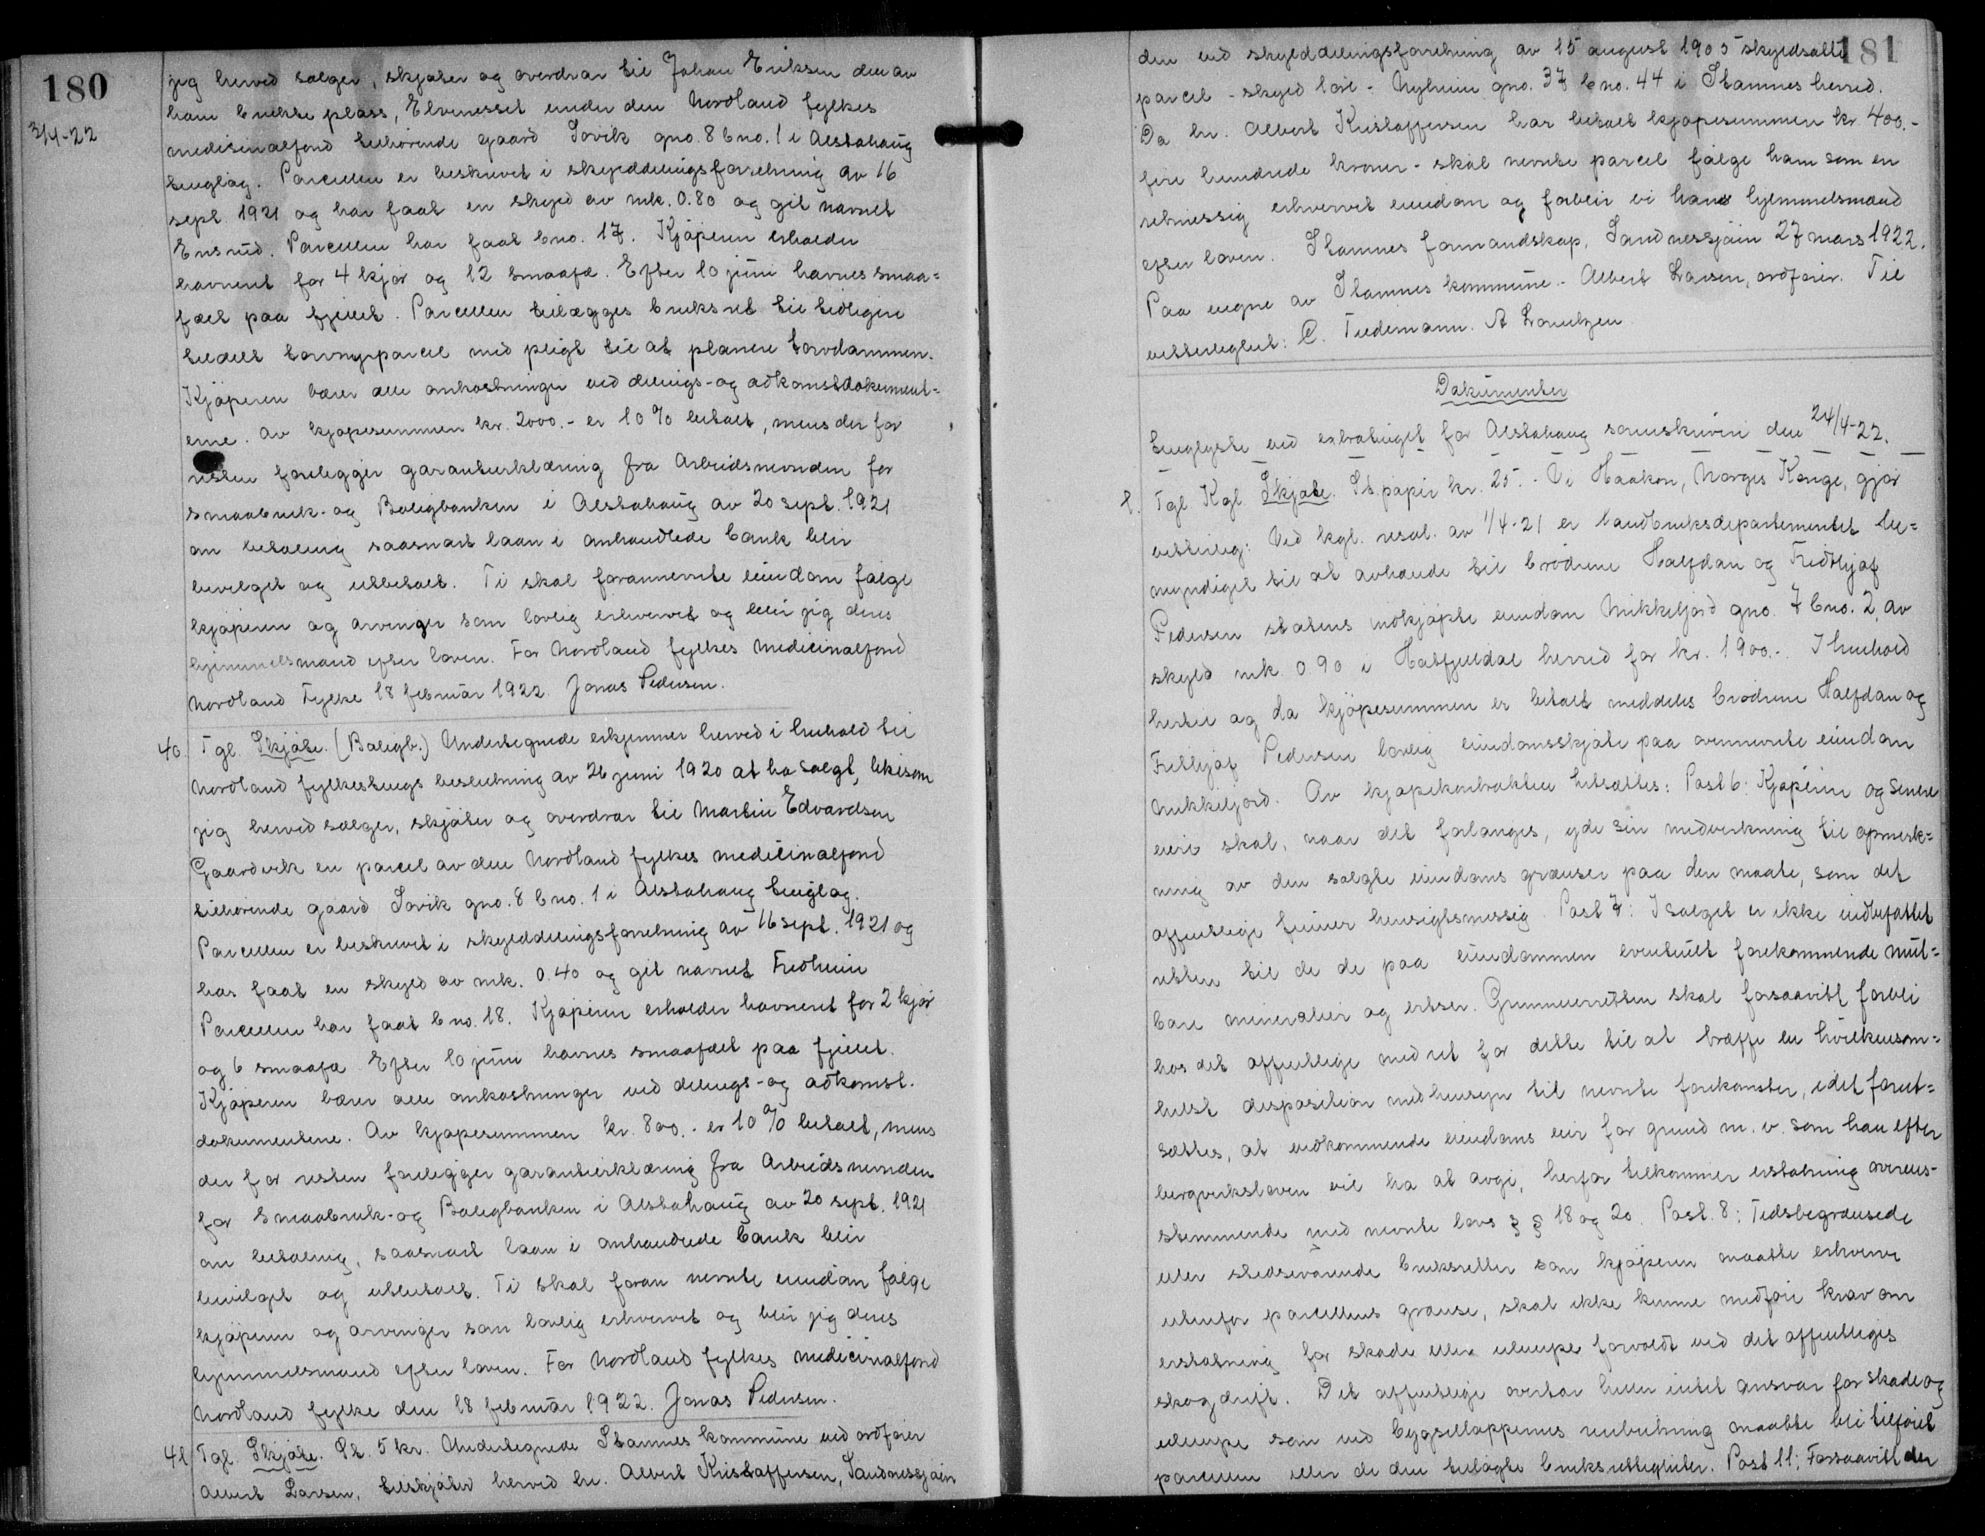 180
3/4-22
jeg herved sælger, skjøter og overdrar til Johan Eriksen den av
ham brukte plass, Elvenesset under den Nordland fylkes
medicinalfond tilhørende gaard Søvik gno. 8 bno. 1 i Alstahaug
tinglag. Parcellen er beskrevet i skylddelingsforretning av 16
sept 1921 og har faat en skyld av mk. 0.80 og git navnet
Ensrud. Parcellen har faat bno. 17. Kjøperen erholder
havneret for 4 kjør og 12 smaafæ. Efter 10 juni havnes smaa=
fæet paa fjellet. Parcellen tillægges bruksret til tidligere
tildelt torvmyrparcel med pligt til at planere torvdammen.
Kjøperen bærer alle omkostninger ved delings- og adkomstdokument=
erne. Av kjøpesummen kr. 2000.- er 10 % betalt, mens der for
resten foreligger garantierklæring fra Arbeidsnevnden for
Smaabruk- og Boligbanken i Alstahaug av 20 sept. 1921
om betaling saasnart laan i omhandlede bank blir
bevilget og utbetalt. Ti skal forannevnte eiendom følge
kjøperen og arvinger som lovlig erhvervet og blir jeg deres
hjemmelsmand efter loven. For Nordland fylkes medicinalfond
Nordland Fylke 18 februar 1922. Jonas Pedersen.
40. Tgl. Skjøte. (Boligb.) Undertegnede erkjenner herved i henhold til
Nordland fylkestings beslutning av 26 juni 1920 at ha solgt, likesom
jeg herved sælger, skjøter og overdrar til Martin Edvardsen
Gaardvik en parcel av den Nordland fylkes medicinalfond
tilhørende gaard Søvik gno. 8 bno. 1 i Alstahaug tinglag.
Parcellen er beskrevet i skylddelingsforretning av 16 sept. 1921 og
har faat en skyld av mk. 0.40 og git navnet Fredheim
Parcellen har faat bno. 18. Kjøperen erholder havneret for 2 kjør
og 6 smaafæ Efter 10 juni havnes smaafæet paa fjellet.
Kjøperen bærer alle omkostninger ved delings- og adkomst.
dokumentene. Av kjøpesummen kr. 800.- er 10 % betalt, mens
der for resten foreligger garantierklæring fra Arbeidsnevnden
for Smaabruk- og Boligbanken i Alstahaug av 20 sept. 1921
om betaling, saasnart laan i omhandlede bank blir
bevilget og utbetalt. Ti skal foran nevnte eiendom følge
kjøperen og arvinger som lovlig erhvervet og blir jeg deres
hjemmelsmand efter loven. For Nordland fylkes medicinalfond
Nordland fylke den 18 februar 1922. Jonas Pedersen.
41 Tgl. Skjøte. St. 5 kr. Undertegnede Stamnes kommune ved ordfører
Albert Larsen, tilskjøter herved hr. Albert Kristoffersen, Sandnessjøen
181
den ved skylddelingsforretning av 15 august 1905 skyldsatte
parcel - skyld 1 øre - Nyheim gno. 37 bno. 44 i Stamnes herred.
Da hr. Albert Kristoffersen har betalt kjøpesummen kr. 400.-
fire hundrede kroner - skal nevnte parcel følge ham som en
retmessig erhvervet eiendom og forblir vi hans hjemmelsmænd
efter loven. Stamnes formandskap, Sandnessjøen 27 mars 1922.
Paa vegne av Stamnes kommune - Albert Larsen, ordfører. Til
vitterlighet: C. Tiedemann. A Lorentzen.
Dokumenter
tinglyste ved extratinget for Alstahaug sorenskriveri den 24/4-22.
1. Tgl Kgl Skjøte. St.papir kr. 25.- Vi Haakon, Norges Konge, gjør
vitterlig: Ved kgl. resol. av 1/4-21 er landbruksdepartementet be=
myndiget til at avhænde til brødrene Halfdan og Fridthjof
Pedersen statens indkjøpte eiendom Mikkeljord gno. 7 bno. 2, av
skyld mk 0 90 i Hatfjeldal herred for kr. 1900.- I henhold
hertil og da kjøpesummen er betalt meddeles brødrene Halfdan og
Fridthjof Pedersen lovlig eiendomsskjøte paa ovennevnte eiendom
Mikkeljord. Av kjøpekontrakten hitsættes: Post 6: Kjøperen og senere
eiere skal, naar det forlanges, yde sin medvirkning til opmerk=
ning av den solgte eiendoms grænser paa den maate, som det
offentlige finner hensigtsmessig. Post 7: I salget er ikke indbefattet
retten til de de paa eiendommen eventuelt forekommende nut=
bare mineralier og ertser. Grunneierretten skal forsaavidt forbli
hos det offentlige med ret for dette til at træffe en hvilkensom=
helst disposition med hensyn til nevnte forekomster, idet forut=
sættes, at vedkommende eiendoms eier for grund m. v. som han efter
bergverksloven vil ha at avgi, herfor tilkommer erstatning overens-
stemmende med nevnte lovs § § 18 og 20. Post. 8: Tidsbegrænsede
eller stedsevarende bruksretter som kjøperen maatte erhverve
utenfor parcellens grænse, skal ikke kunne medføre krav om
erstatning for skade eller ulempe forvoldt ved det offentliges
skogdrift. Det offentlige overtar heller intet ansvar for skade og
ulempe som ved bygsellappenes renbeitning maatte bli tilføiet
parcellen eller de den tillagte bruksrettigheter. Post 11: Forsaavidt der